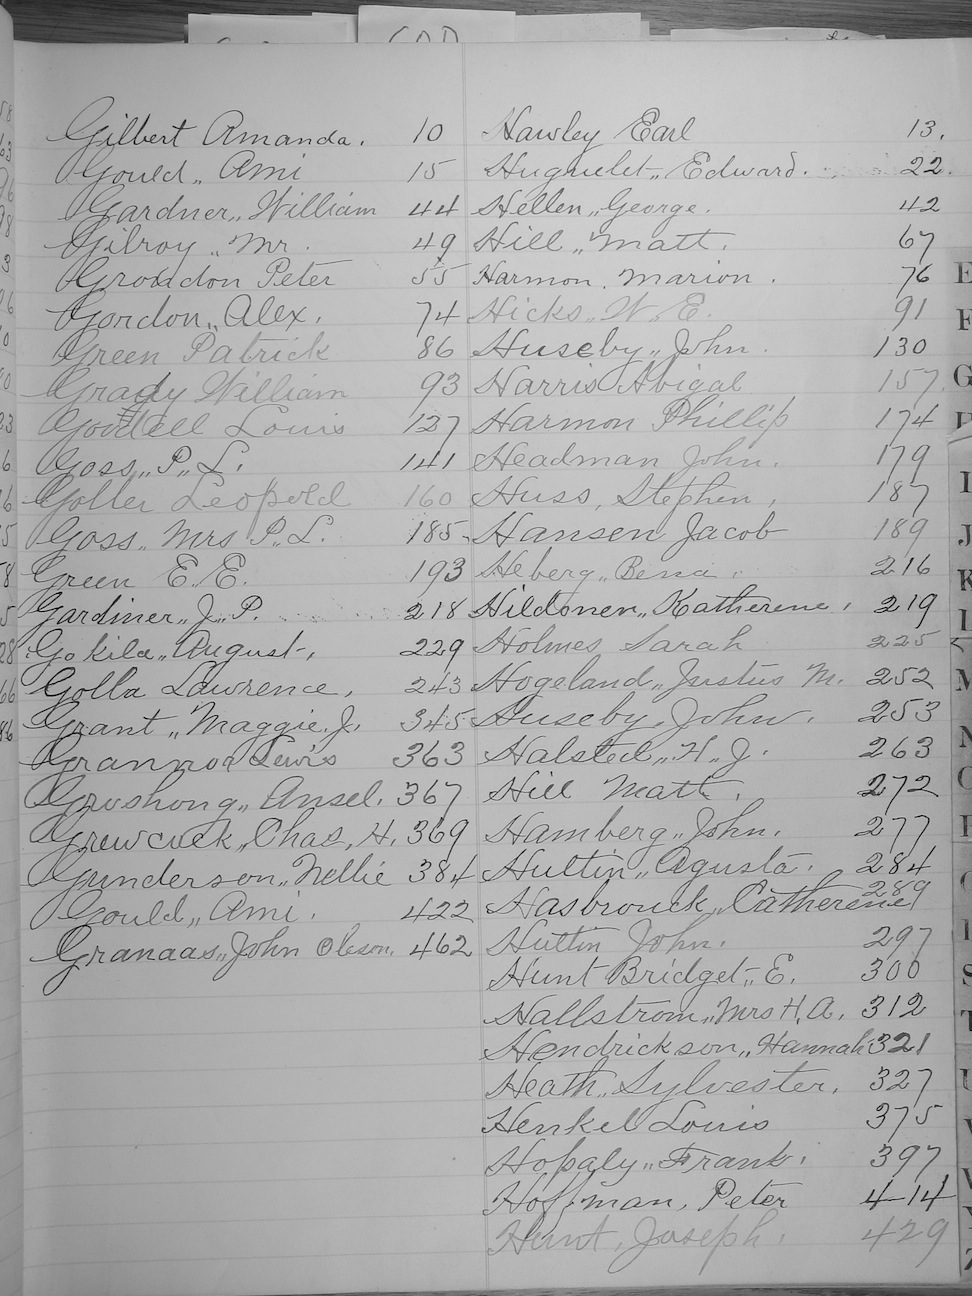 Gilbert Amanda. 10
Gould,, Ami 15
Gardner,, William 44
Gilroy,, Mr. 49
Grondon Peter 55
Gordon,, Alex. 74
Green Patrick 86
Grady William 93
Goodell Louis 127
Goss,, P,, L. 141
Goller Leopold 160
Goss,, Mrs P,, L. 185
Green E. E. 193
Gardiner,, J,, P. 218
Gokila,, August, 229
Golla Lawrence, 243
Grant,, Maggie. J. 345
Grannoa Lewis 363
Groshong,, Ansel. 367
Grewcock,, Chas, H. 369
Gunderson,, Nellie 384
Gould,, Ami. 422
Granaas,, John Oleson. 462
Hawley Earl 13.
Huguelet,, Edward. 22.
Hellen,, George. 42
Hill,, Matt. 67
Harmon. Marion. 76
Hicks,, W,, E. 91
Huseby,, John. 130
Harris Abigal 157
Harmon Phillip 174
Headman John. 179
Huss, Stephen, 187
Hansen Jacob 189
Heberg,, Bena. 216
Hildonen,, Katherene, 219
Holmes Sarah 225
Hogeland,, Justus M. 252
Huseby, John. 253
Halsted,, H,, J. 263
Hill Matt. 272
Hamberg,, John. 277
Huttin,, Agusta. 284
Hasbrouck, Catherene 289
Huttin John. 297
Hunt Bridget,, E. 300
Hallstrom,, Mrs H. A. 312
Hendrickson,, Hannah 321
Heath,, Sylvester. 327
Henkel Louis 375
Hopaly,, Frank. 397
Hoffman, Peter 414
Hunt, Joseph. 429